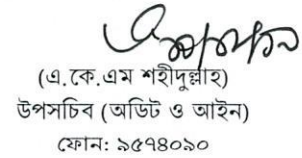 (এ.কে.এম শহীদুল্লাহ)
উপসচিব (অডিট ও আইন)
ফোন: ৯৫৭৪০৯০